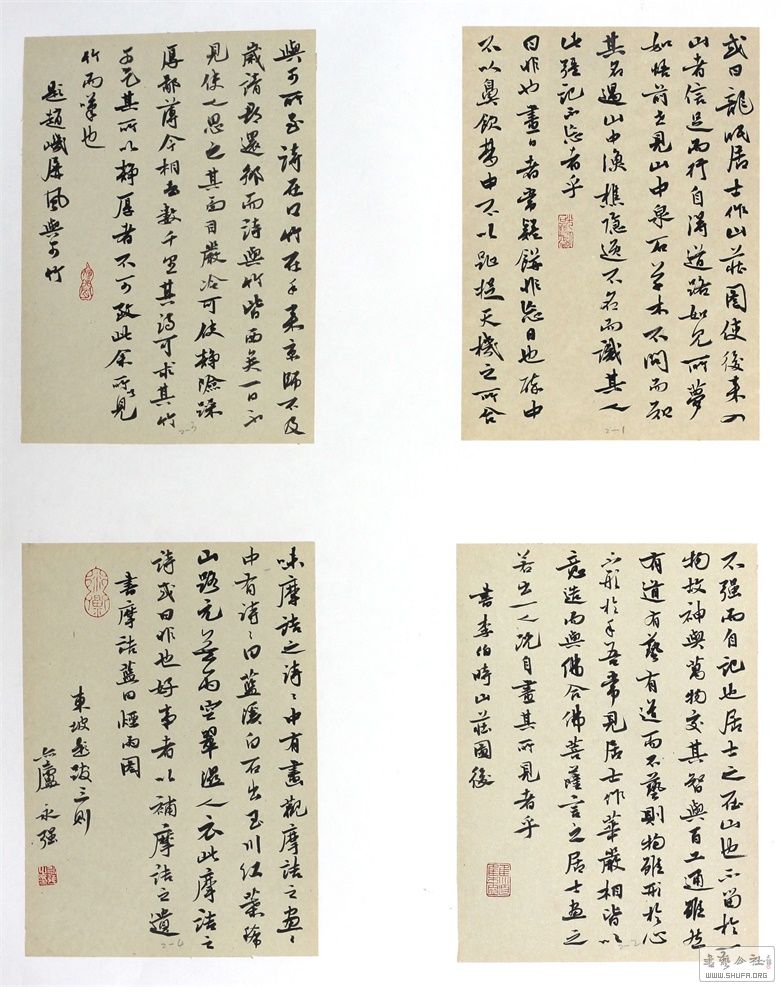 或曰龍眠居士作山莊圖使後来入
山者信足而行自得道路如見所夢
如悟前世見山中泉石草木不問而知
其名遇山中漁樵隱逸不名而識其人
此强記不忘者乎
曰非也畫日者常疑餅非忘日也醉中
不以鼻飲夢中不以趾捉天機之所合
2-1
不强而自記也居士之在山也不留於一
物故神與萬物交其智與百工通雖然
有道有藝有道而不藝則物雖形於心
不形於手吾常見居士作華嚴相皆以
意造而與佛合佛菩薩言之居士畫之
若出一人况自畫其所見者乎
書李伯時山莊圖後
2-2
與可所至詩在口竹在手来京師不及
歲請郡還鄉而詩與竹皆西矣一日不
見使人思之其面目嚴冷可使靜險躁
厚鄙薄今相去數千里其詩可求其竹
可乞其所以靜厚者不可致此余所以見
竹而嘆也
題趙屏風與可竹
2-3
味摩詰之詩〻中有畫觀摩詰之畫〻
中有詩〻曰藍溪白石出玉川紅葉稀
山路元無雨空翠濕人衣此摩詰之
詩或曰非也好事者以補摩詰之遺
書摩詰藍田煙雨圖
東坡題跋三則
廬永强
2-4
書藝公社
WWW.SHUFA.ORG